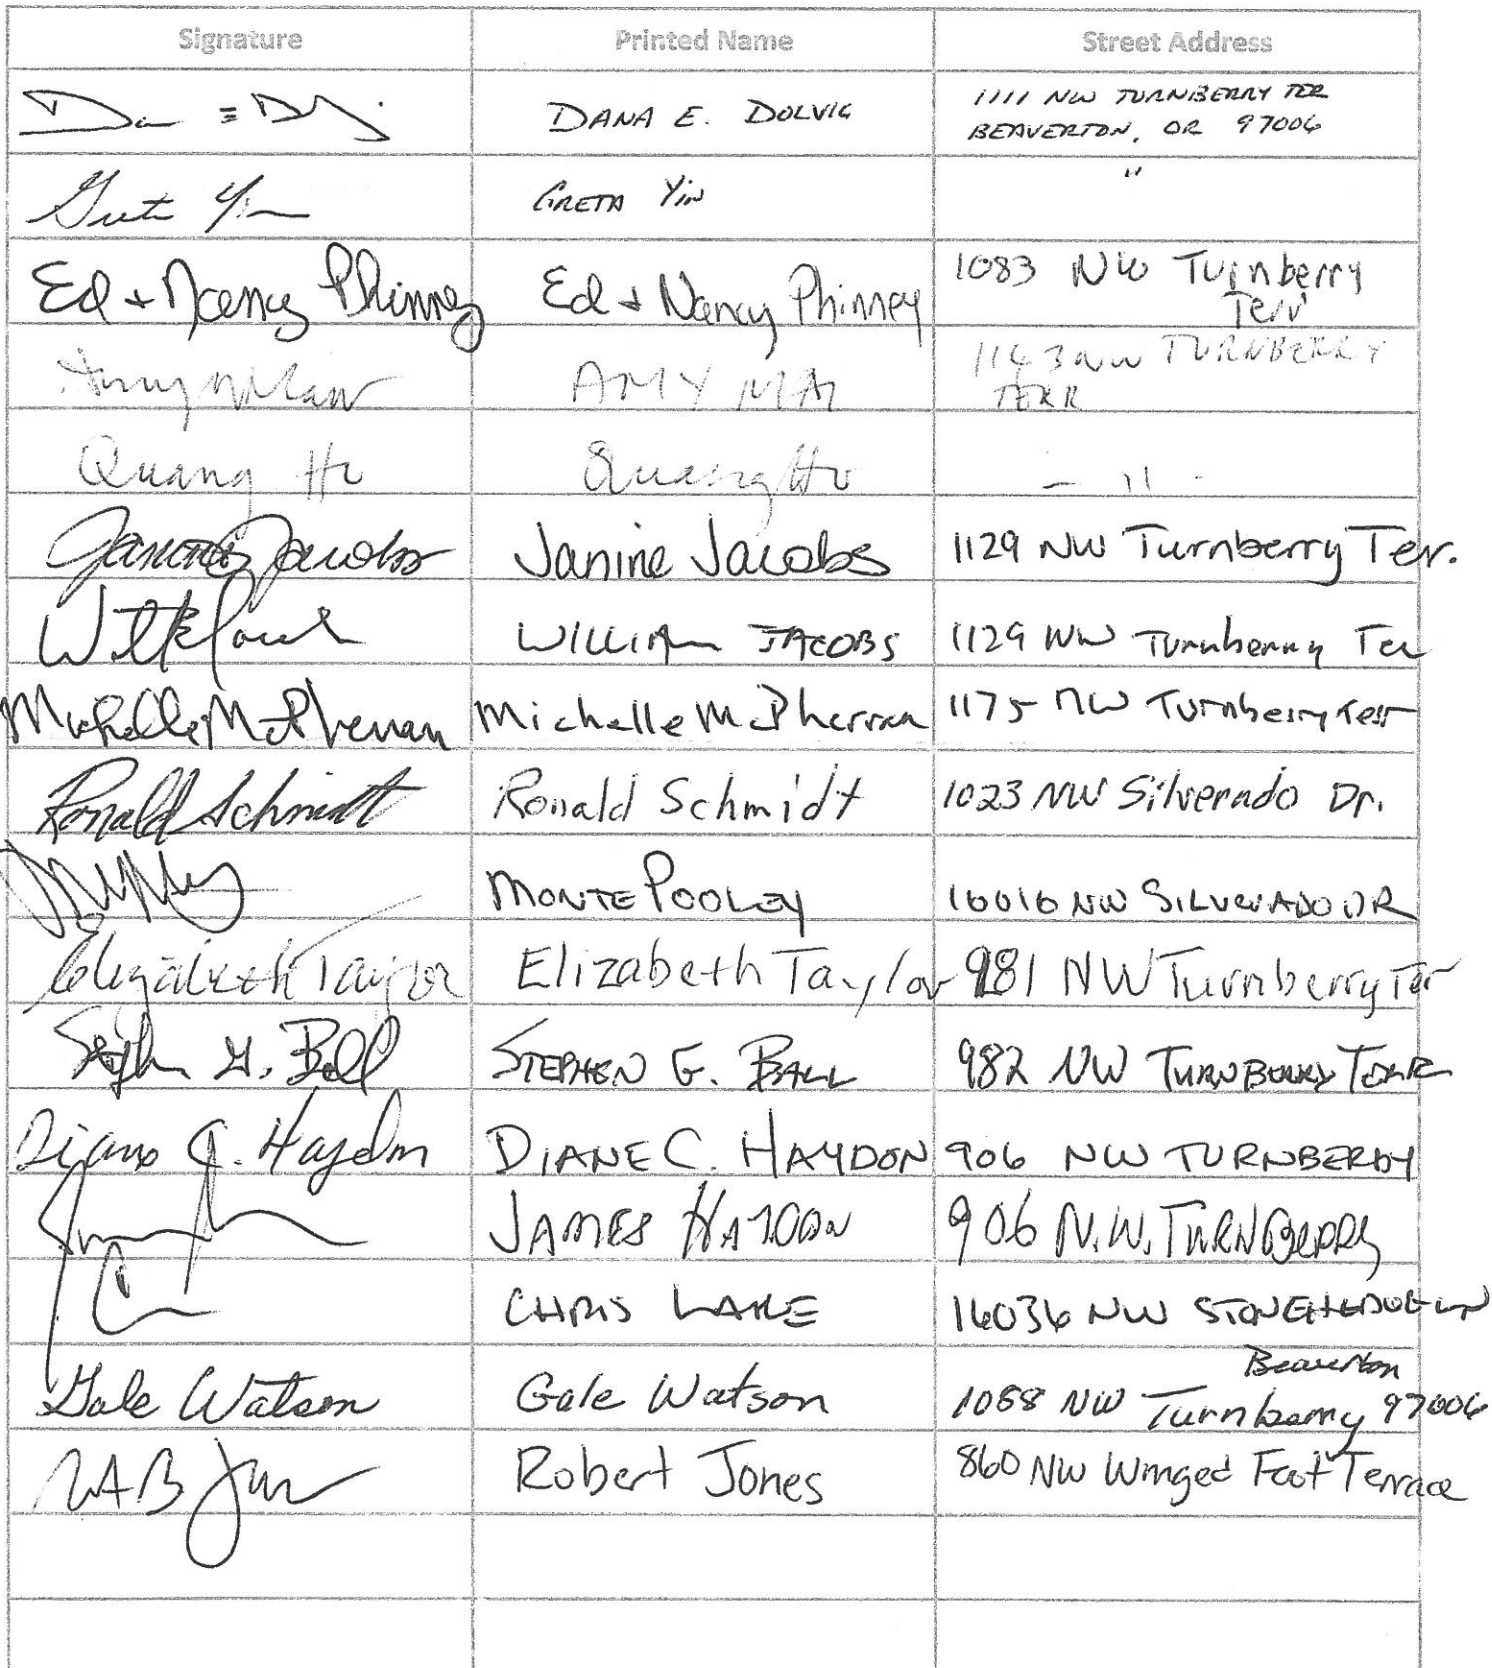 Signature Printed Name Street Address
DANA E. DOLVIG 1111 NW TURNBERRY TER
BEAVERTON, OR 97006
Greta Yin GRETA YIN "
Ed + Nancy Phinney Ed + Nancy Phinney 1083 NW Turnberry
Terr
AMY MAI NW TURNBERRY
TERR
Quang Ho Quang Ho - " -
Janine Jacobs Janine Jacobs 1129 NW Turnberry Ter.
WILLIAM JACOBS 1129 NW Turnberry Ter
Michelle McPherran Michelle McPherran 1175 NW Turnberry Terr
Ronald Schmidt Ronald Schmidt 1023 NW Silverado Dr.
MONTE POOLEY 16016 NW SILVERADO DR
Elizabeth Taylor Elizabeth Taylor 981 NW Turnberry Ter
Stephen G. Ball STEPHEN G. BALL 982 NW TURNBERRY TERR
Diane C. Haydon DIANE C. HAYDON 906 NW TURNBERRY
JAMES HAYDON 906 N.W. TURNBERRY
CHRIS LAKE 16036 NW STONEHEDGE LN
Beaverton
Gale Watson Gale Watson 1088 NW Turnberry 97006
Robert Jones 860 NW Winged Foot Terrace